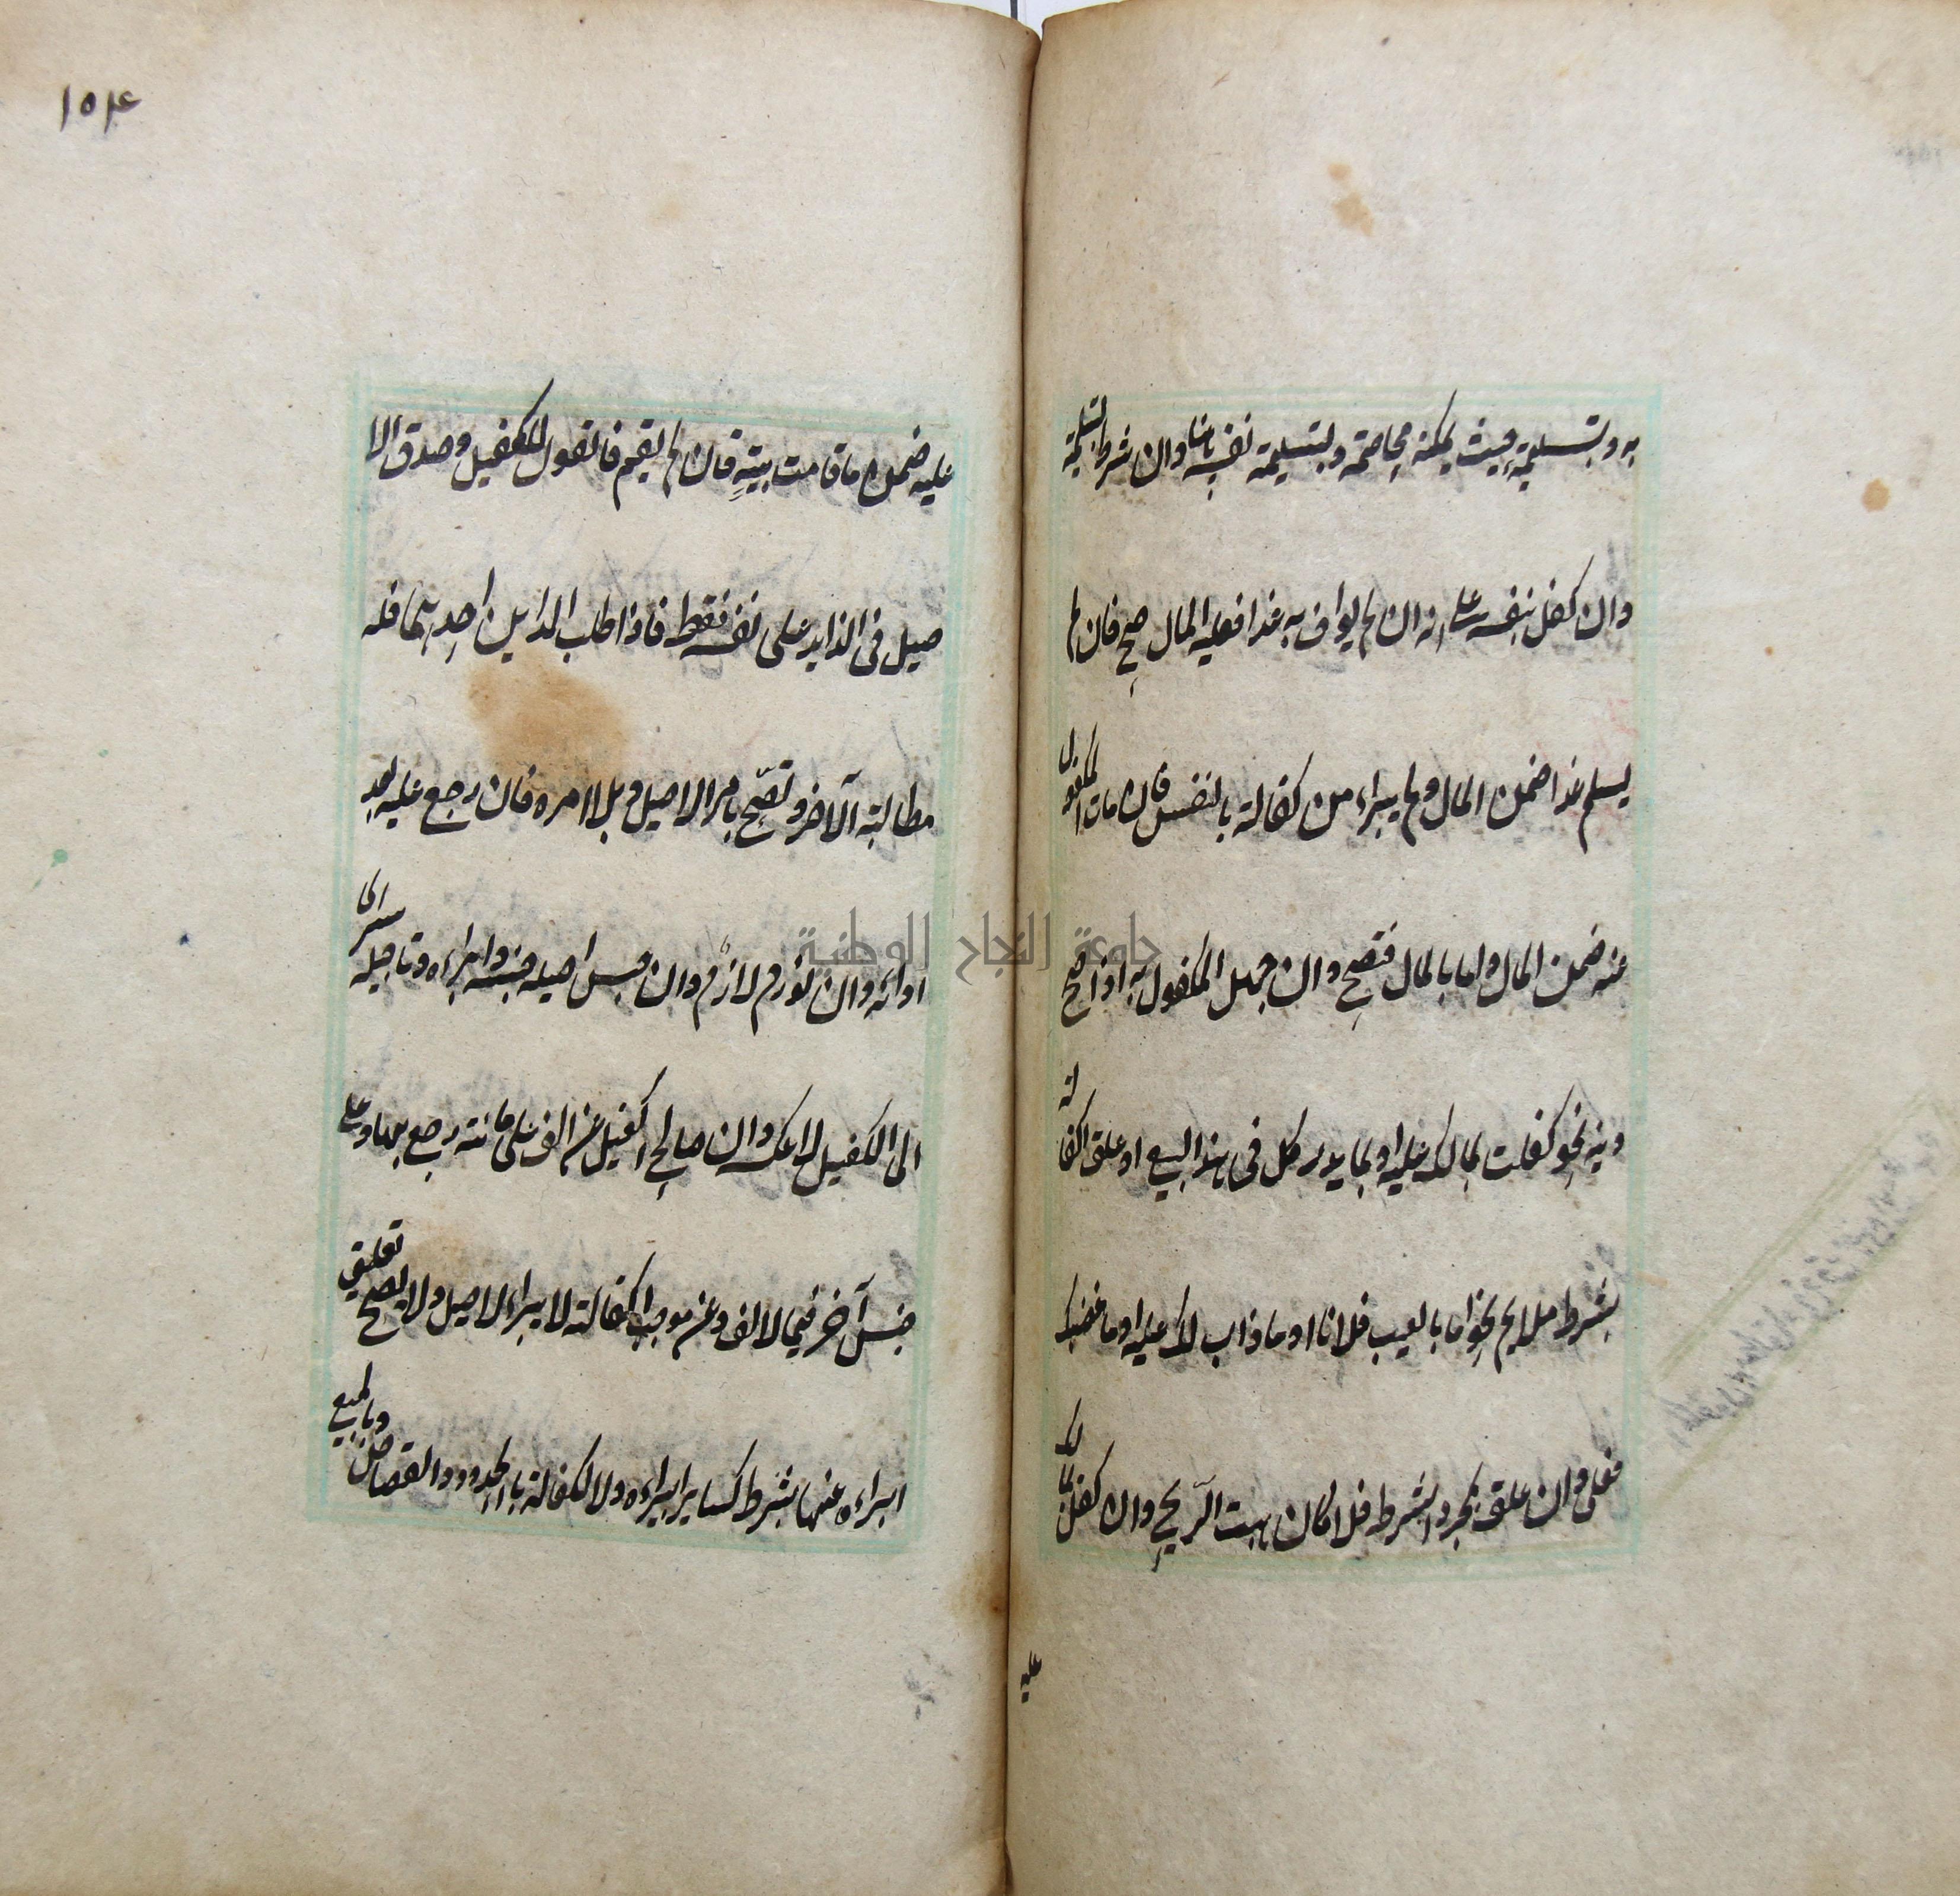 به وبتسليمه حيث يمكنه مخاصمته وبتسليمه نفسه هنا وان شرط تسليمه
وان كفل بنفسه على انه ان لم يواف به غدا فعليه المال صح فان لم
يسلم غدا ضمن المال ولم يبراء من كفالة بالنفس فان مات المكفول
عنه ضمن المال واما بالمال فتصح وان جهل المكفول به اذا صح
دينه نحو كفلت بمالك عليه او بما يدركك فى هذا البيع او علق الكفالة
بشرط ملايم نحو اما بايعت فلانا او ما ذاب لك عليه او ما غصبك
فعلى وان علق بمجرد الشرط فلا كان هبت الريح وان كفل بما لك
عليه
١٥٤
عليه ضمن ما قامت بينة فان لم يقم فالقول للكفيل وصدق الا
صيل فى الزايد على نفسه فقط فاذا طلب الداين احدهما فله
مطالبة الآخر وتصح بامر الاصيل وبلا امره فان رجع عليه بعد
ادائه وان لوزم لازم وان حبس اصيله حبسه وابراءه وتاجيله
الى الكفيل لا عكسه وان صالح الكفيل عن الف على مائة رجع بها وعلى
جنس آخر فبالالف وعن موجب الكفالة لا يبراء الاصيل ولا يصح تعليق
ابراءه عنها بشرط كساير ابراءه ولا الكفالة بالحدود والقصاص وبالمبيع
جامعة النجاح الوطنية